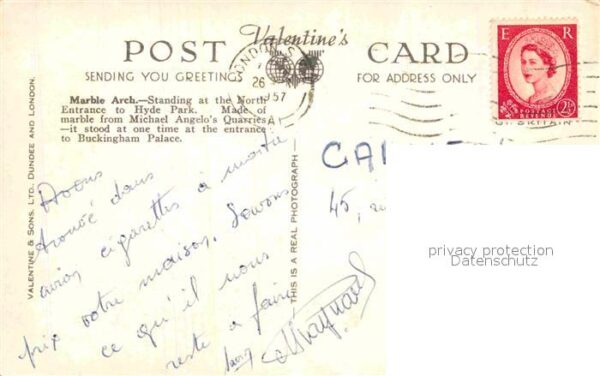 Valentine's
POST CARD
SENDING YOU GREETINGS
FOR ADDRESS ONLY
LONDON
26
1957
E R
POSTAGE
REVENUE
2½
Marble Arch.—Standing at the North
Entrance to Hyde Park. Made of
marble from Michael Angelo's Quarries
—it stood at one time at the entrance
to Buckingham Palace.
VALENTINE & SONS, LTD., DUNDEE AND LONDON.
THIS IS A REAL PHOTOGRAPH
Avons
trouvé dans
avion cigarettes à moitié
prix votre maison. Savons
ce qu'il nous
reste à faire
45,
privacy protection
Datenschutz